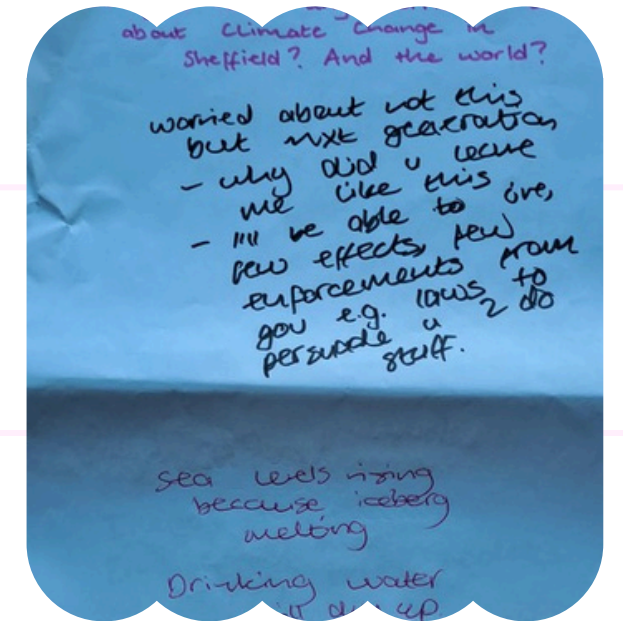 about Climate Change in
Sheffield? And the world?
worried about not this
but nxt generation
- why did u leave
me like this
- I'll be able to live,
few effects, few
enforcements from
gov e.g. laws to
persuade u 2 do
stuff.
sea levels rising
because iceberg
melting
Drinking water
dry up